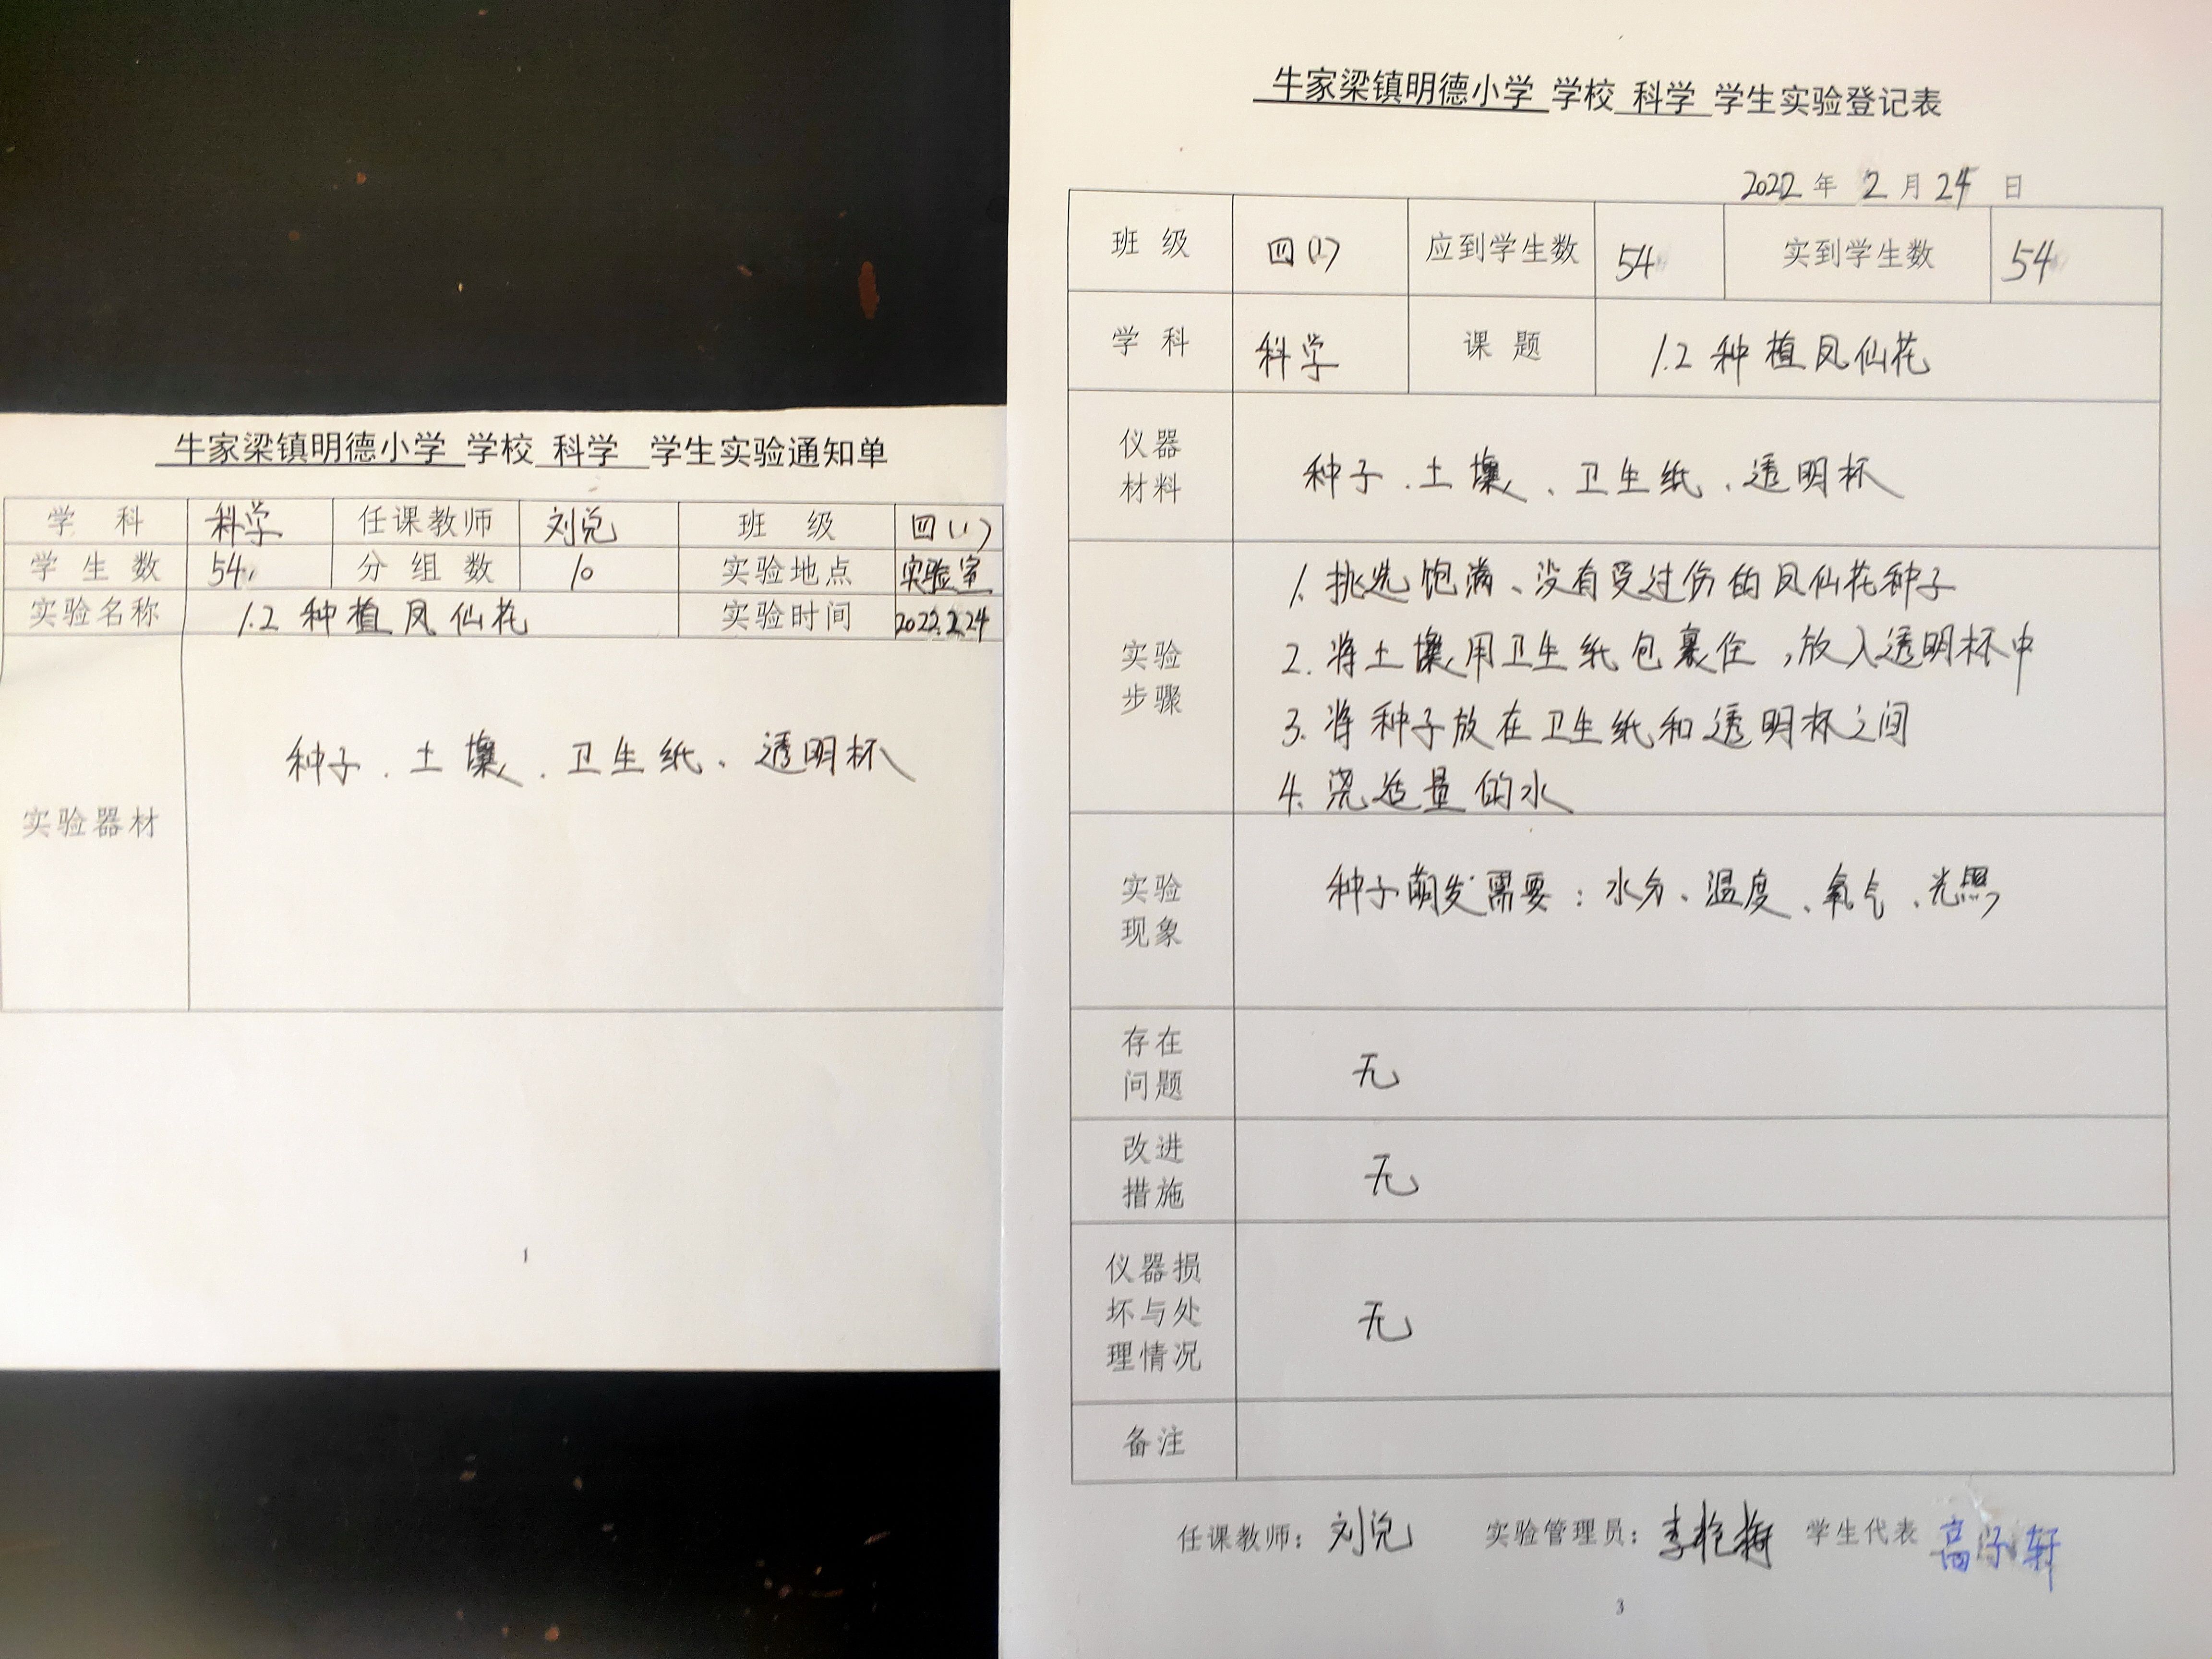 牛家梁镇明德小学 学校 科学 学生实验通知单
学 科 科学 任课教师 刘兑 班 级 四(1)
学 生 数 54 分 组 数 10 实验地点 实验室
实验名称 1.2 种植凤仙花 实验时间 2022.2.24
实验器材 种子、土壤、卫生纸、透明杯
1
牛家梁镇明德小学 学校 科学 学生实验登记表
2022 年 2 月 24 日
班 级 四(1) 应到学生数 54 实到学生数 54
学 科 科学 课 题 1.2 种植凤仙花
仪器
材料
种子、土壤、卫生纸、透明杯
实验
步骤
1. 挑选饱满、没有受过伤的凤仙花种子
2. 将土壤用卫生纸包裹住,放入透明杯中
3. 将种子放在卫生纸和透明杯之间
4. 浇适量的水
实验
现象
种子萌发需要:水分、温度、氧气、光照
存在
问题
无
改进
措施
无
仪器损
坏与处
理情况
无
备注
任课教师: 刘兑 实验管理员: 李艳梅 学生代表 高子轩
3